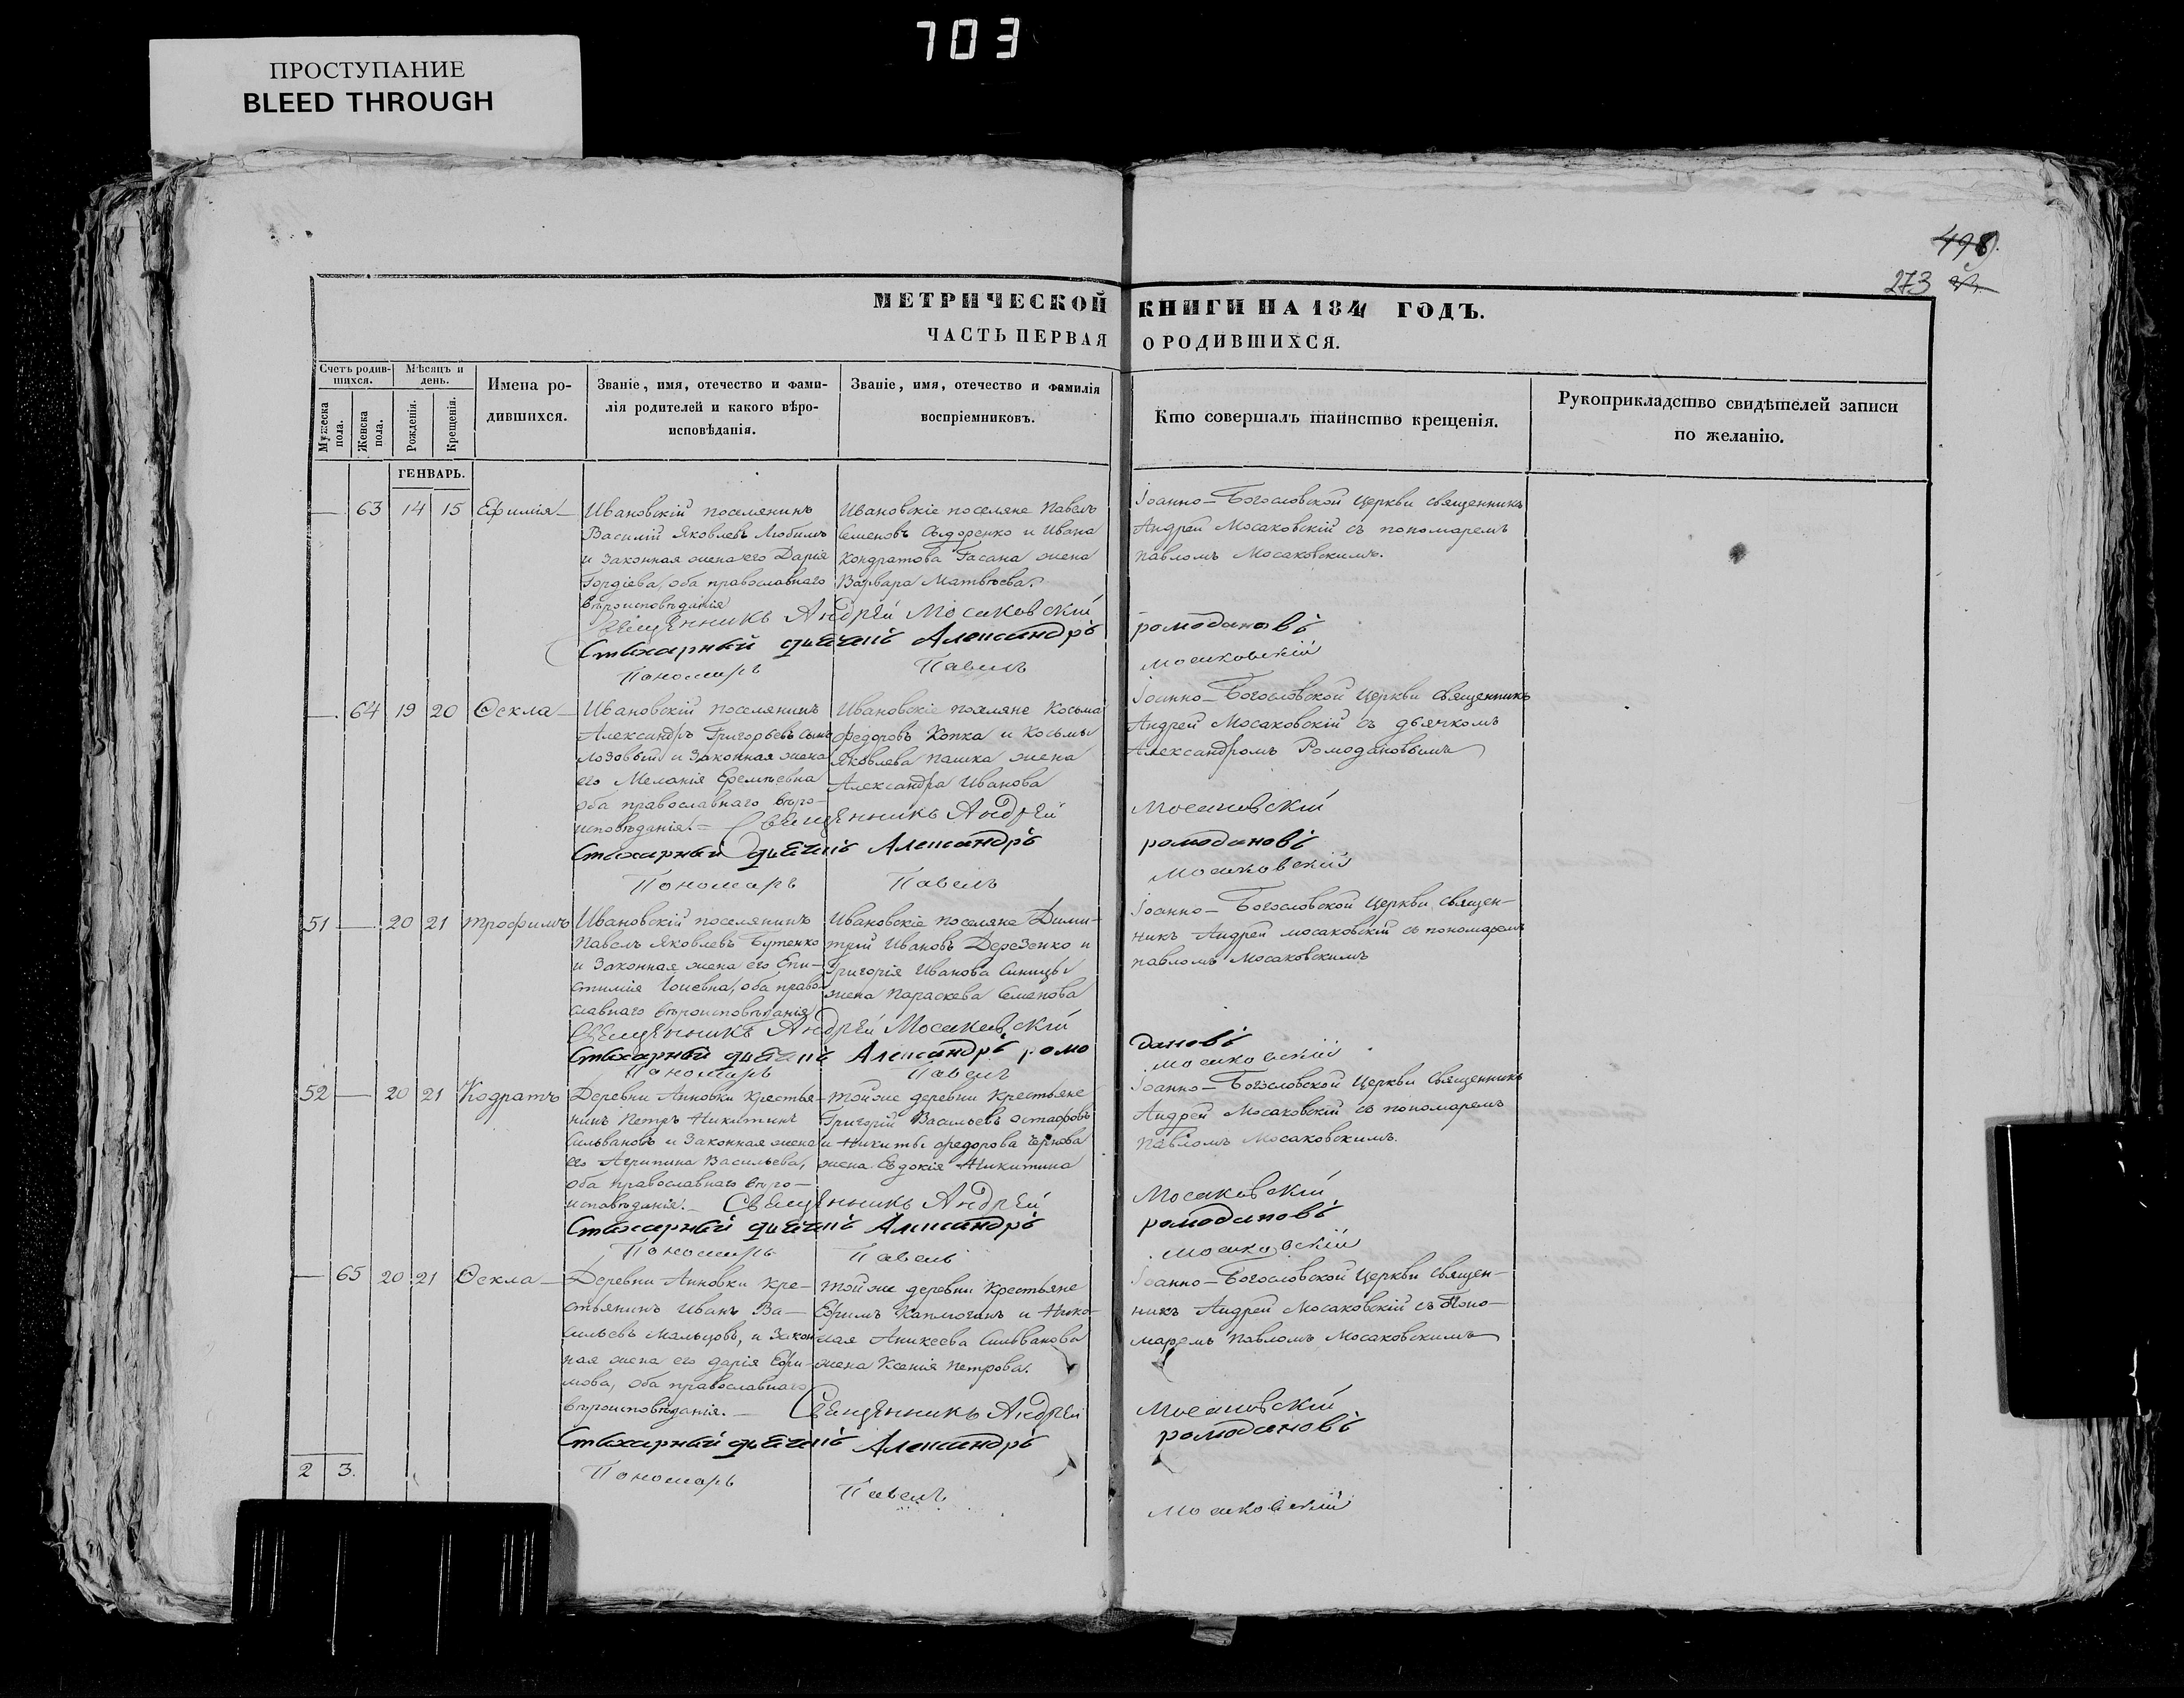 703
ПРОСТУПАНИЕ
BLEED THROUGH
498
273
МЕТРИЧЕСКОЙ КНИГИ НА 1841 ГОДЪ.
ЧАСТЬ ПЕРВАЯ О РОДИВШИХСЯ.
Счетъ родив-
шихся.
Мужеска
пола.
Женска
пола.
Мѣсяцъ и
день.
Рожденія.
Крещенія.
Имена ро-
дившихся.
Званіе, имя, отечество и фами-
лія родителей и какого вѣро-
исповѣданія.
Званіе, имя, отечество и фамилія
воспріемниковъ.
Кто совершалъ таинство крещенія.
Рукоприкладство свидѣтелей записи
по желанію.
ГЕНВАРЬ.
— 63 14 15 Ефимія
Ивановскій поселянинъ
Василій Яковлевъ Любимъ
и законная жена его Дарія
Гордіева, оба православнаго
вѣроисповѣданія
Ивановскіе поселяне Павелъ
Семеновъ Сидоренко и Ивана
Кондратова Гасана жена
Варвара Матвѣева.
Іоанно-Богословской Церкви священникъ
Андрей Мосаковскій съ пономаремъ
Павломъ Мосаковскимъ.
Священникъ Андрей Мосаковскій
Стихарный дьячекъ Александръ Ромодановъ
Пономарь Павелъ Мосаковскій
— 64 19 20 Ѳекла
Ивановскій поселянинъ
Александръ Григорьевъ сынъ
Лозовый и законная жена
его Меланія Еремѣевна
оба православнаго вѣро-
исповѣданія. —
Ивановскіе поселяне Косьма
Федоровъ Копка и Косьмы
Яковлева Пашка жена
Александра Иванова
Іоанно-Богословской Церкви священникъ
Андрей Мосаковскій съ дьячкомъ
Александромъ Ромодановымъ
Священникъ Андрей Мосаковскій
Стихарный дьячекъ Александръ Ромодановъ
Пономарь Павелъ Мосаковскій
51 — 20 21 Трофимъ
Ивановскій поселянинъ
Павелъ Яковлевъ Бутенко
и законная жена его Епи-
стимія оба право-
славнаго вѣроисповѣданія
Ивановскіе поселяне Дими-
трій Ивановъ Дерезенко и
Григорія Иванова Синицы
жена Параскева Семенова
Іоанно-Богословской Церкви священ-
никъ Андрей Мосаковскій съ пономаремъ
Павломъ Мосаковскимъ
Священникъ Андрей Мосаковскій
Стихарный дьячекъ Александръ Ромодановъ
Пономарь Павелъ Мосаковскій
52 — 20 21 Кодратъ
Деревни Анновки крестья-
нинъ Петръ Никитинъ
Сильвановъ и законная жена
его Агрипина Васильева,
оба православнаго вѣро-
исповѣданія. —
Той же деревни крестьяне
Григорій Васильевъ Остафовъ
и Никиты Федорова Чернова
жена Евдокія Никитина
Іоанно-Богословской Церкви священникъ
Андрей Мосаковскій съ пономаремъ
Павломъ Мосаковскимъ.
Священникъ Андрей Мосаковскій
Стихарный дьячекъ Александръ Ромодановъ
Пономарь Павелъ Мосаковскій
— 65 20 21 Ѳекла
Деревни Анновки кре-
стьянинъ Иванъ Ва-
сильевъ Мальцовъ, и закон-
ная жена его Дарія Ефи-
мова, оба православнаго
вѣроисповѣданія. —
Той же деревни крестьяне
Ефимъ и Нико-
лая Аникеева Сильванова
жена Ксенія Петрова.
Іоанно-Богословской Церкви священ-
никъ Андрей Мосаковскій съ поно-
маремъ Павломъ Мосаковскимъ
Священникъ Андрей Мосаковскій
Стихарный дьячекъ Александръ Ромодановъ
Пономарь Павелъ Мосаковскій
2 3.